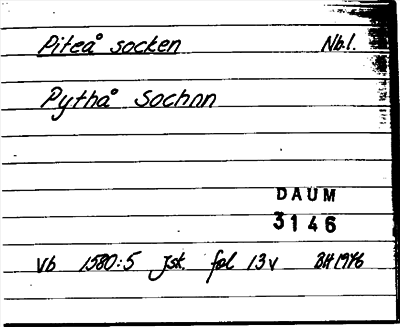 Piteå socken Nb.l.
Pythå Sochnn
DAUM
3146
Vb 1580:5 Jsk. fol 13v BH 1976